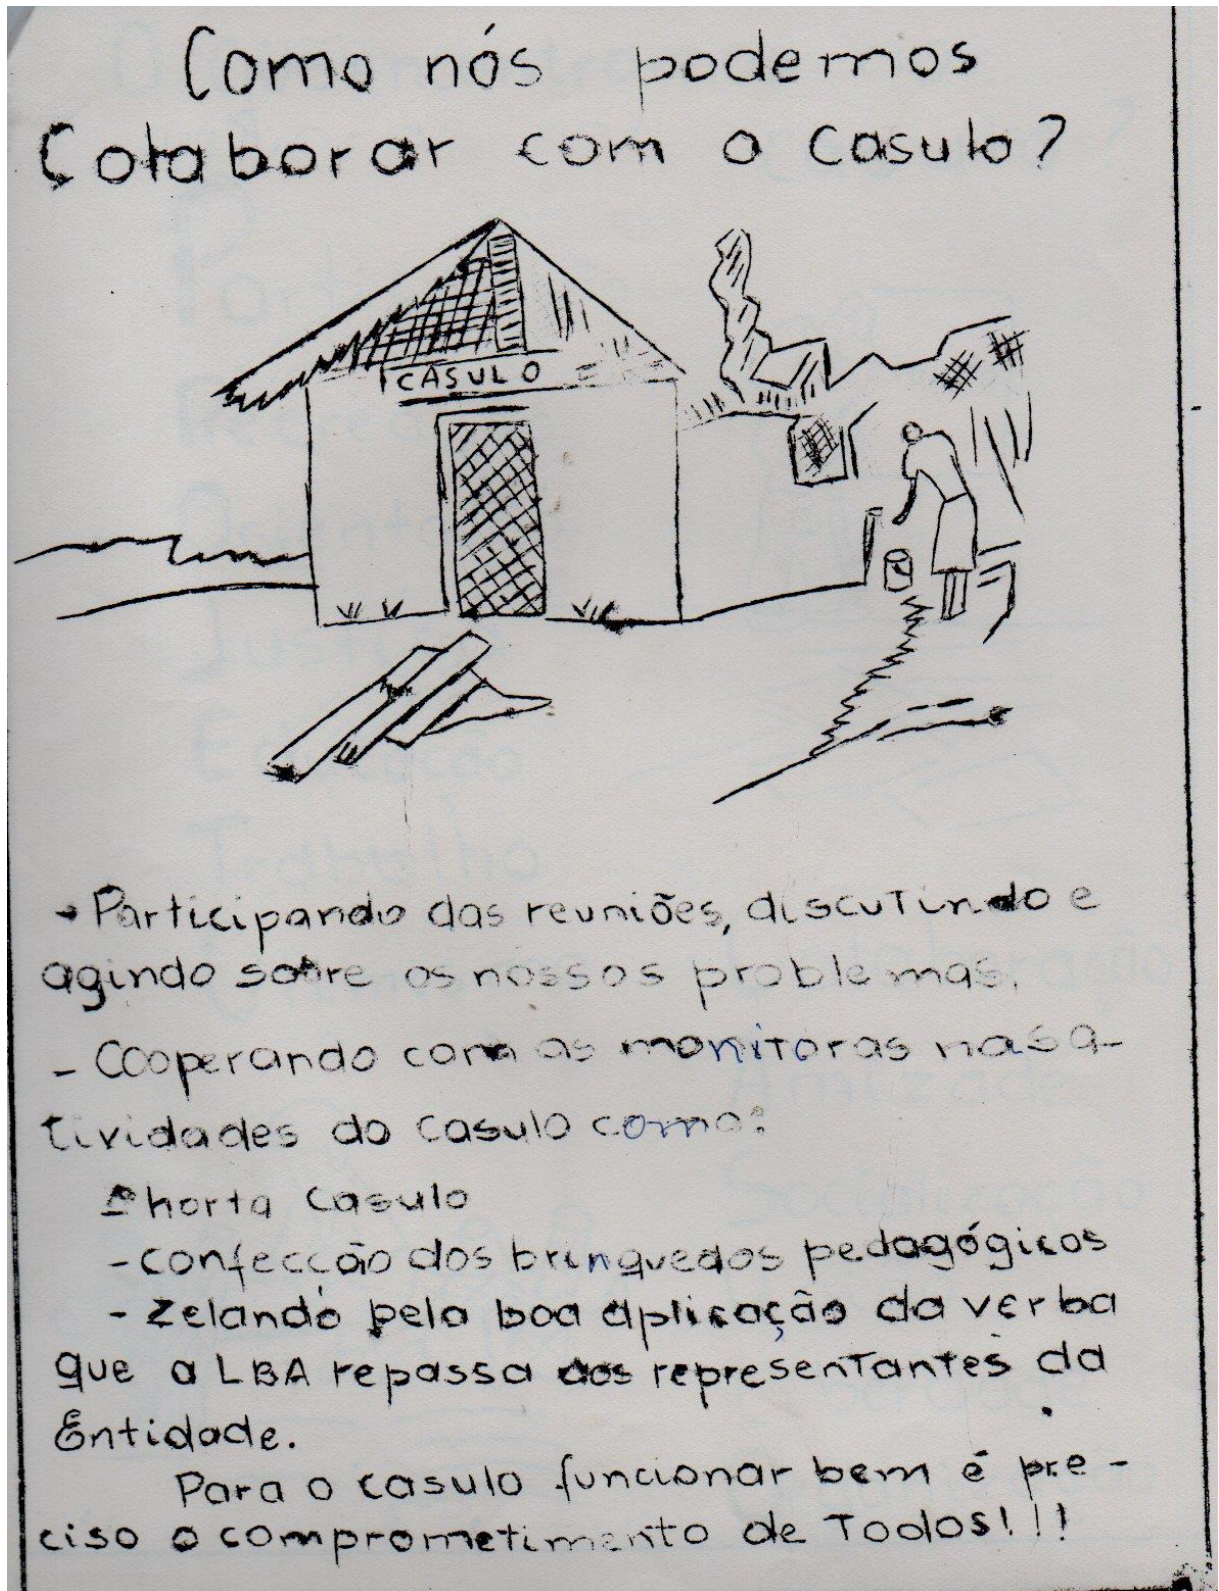 Como nós podemos
Colaborar com o Casulo?
CASULO
- Participando das reuniões, discutindo e
agindo sobre os nossos problemas.
- Cooperando com as monitoras nas a-
tividades do casulo como:
- horta Casulo
- confecção dos brinquedos pedagógicos
- Zelando pela boa aplicação da verba
que a LBA repassa aos representantes da
Entidade.
Para o casulo funcionar bem é pre-
ciso o comprometimento de Todos!!!